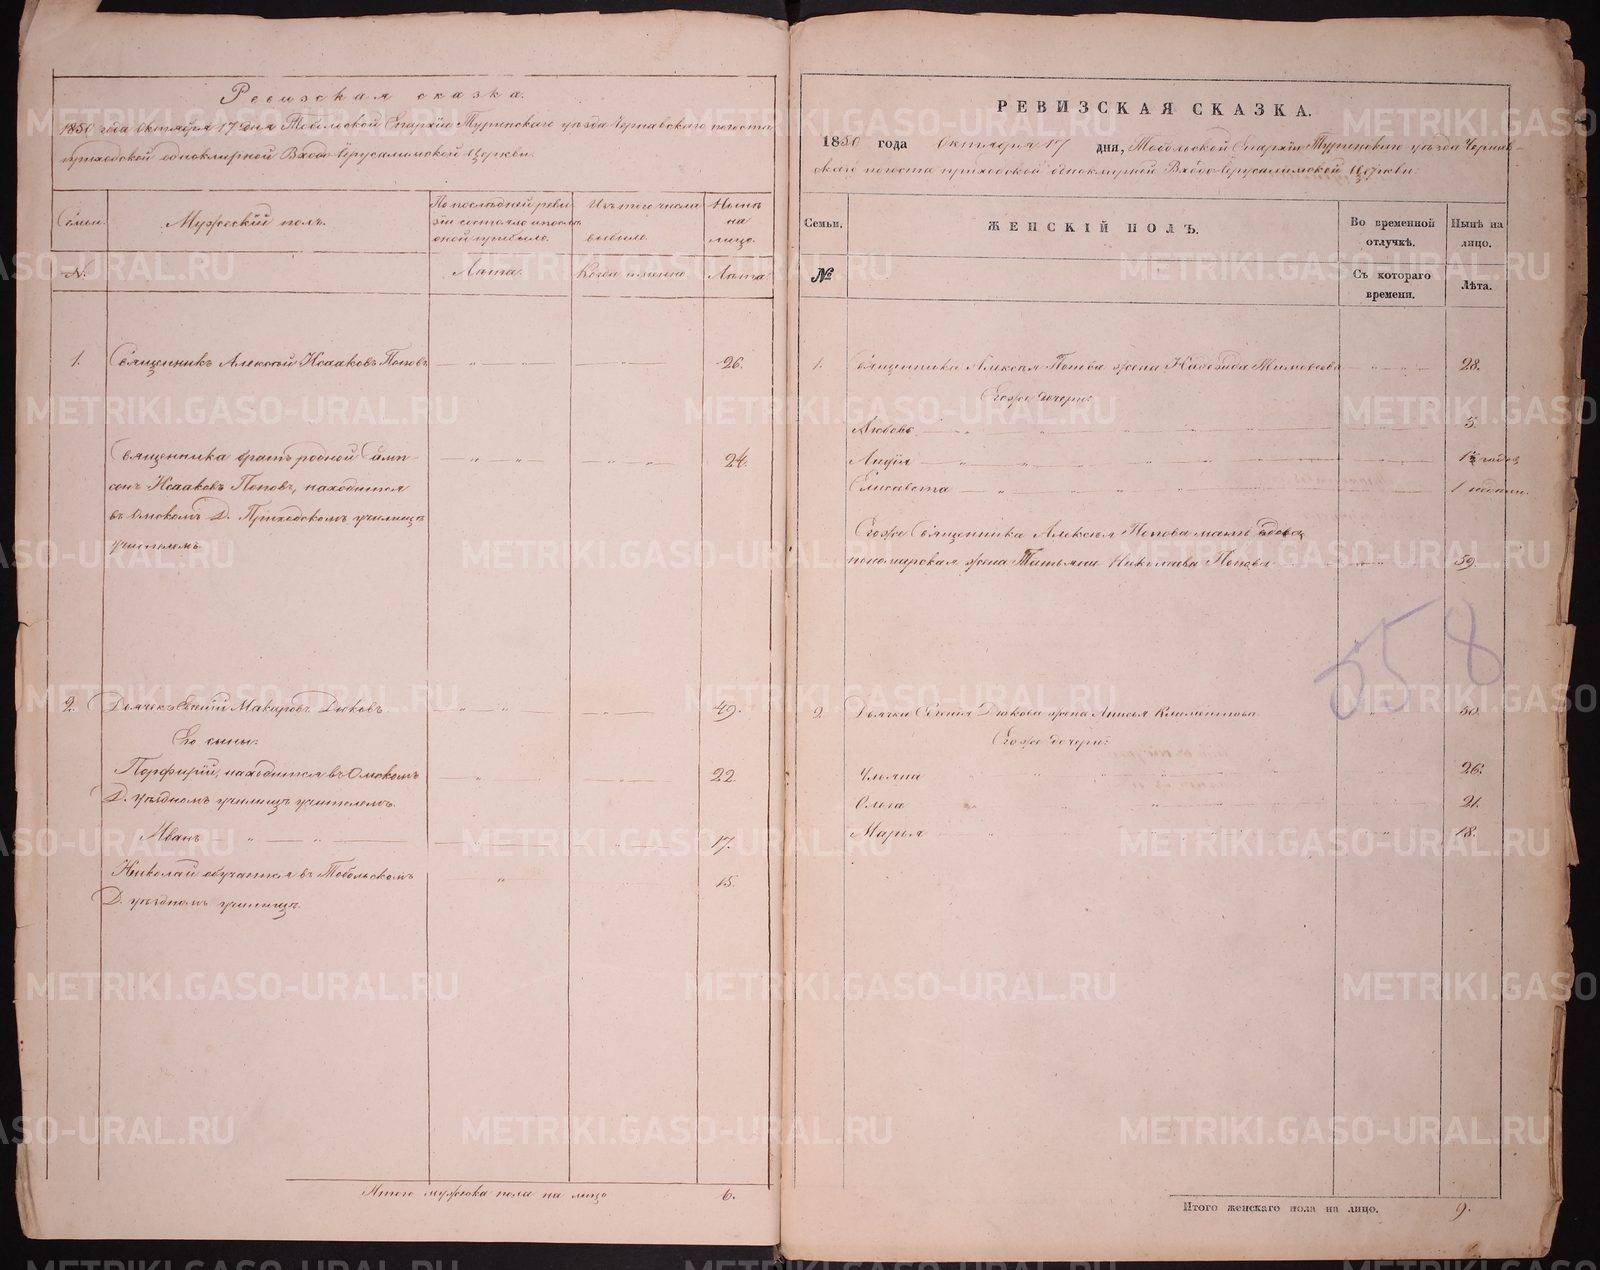 Ревизская сказка.
1850 года Октября 17 дня Тобольской Епархіи Туринскаго уѣзда Чернавскаго погоста
приходской одноклирной Входо-Іерусалимской Церкви.
Семьи. Мужескій полъ. По послѣдней ревизіи состояло и послѣ оной прибыло. Изъ того числа выбыло. Нынѣ на лицо.
№ Лѣта. Когда именно Лѣта
1. Священникъ Алексѣй Исааковъ Поповъ 26.
Священника братъ родной Самп-
сонъ Исааковъ Поповъ, находится 24.
въ Омскомъ Д. Приходскомъ училищѣ
учителемъ.
2. Дьячекъ Евгеній Макаровъ Дюковъ 49.
Его сыны:
Порфирій, находится въ Омскомъ 22
Д. уѣздномъ училищѣ учителемъ.
Иванъ 17.
Николай обучается въ Тобольскомъ 15.
Д. уѣздномъ училищѣ.
Итого мужеска пола на лицо 6.
РЕВИЗСКАЯ СКАЗКА.
1850 года Октября 17 дня, Тобольской Епархіи Туринскаго уѣзда Чернав-
скаго погоста приходской одноклирной Входо-Іерусалимской Церкви.
Семьи. ЖЕНСКІЙ ПОЛЪ. Во временной отлучкѣ. Нынѣ на лицо.
№ Съ котораго времени. Лѣта.
1. Священника Алексѣя Попова жена Надежда 28.
Егоже дочери:
Любовь 5.
Лидія годов
Елисавета 1 недѣли.
Егоже Священника Алексѣя Попова мать вдова
пономарская жена Татьяна Николаева Попова 59.
558
2. Дьячка Дюкова жена Анисья Климентова 50.
Егоже дочери:
Ульяна 26.
Ольга 21.
Марья 18.
Итого женскаго пола на лицо. 9.
METRIKI.GASO-URAL.RU